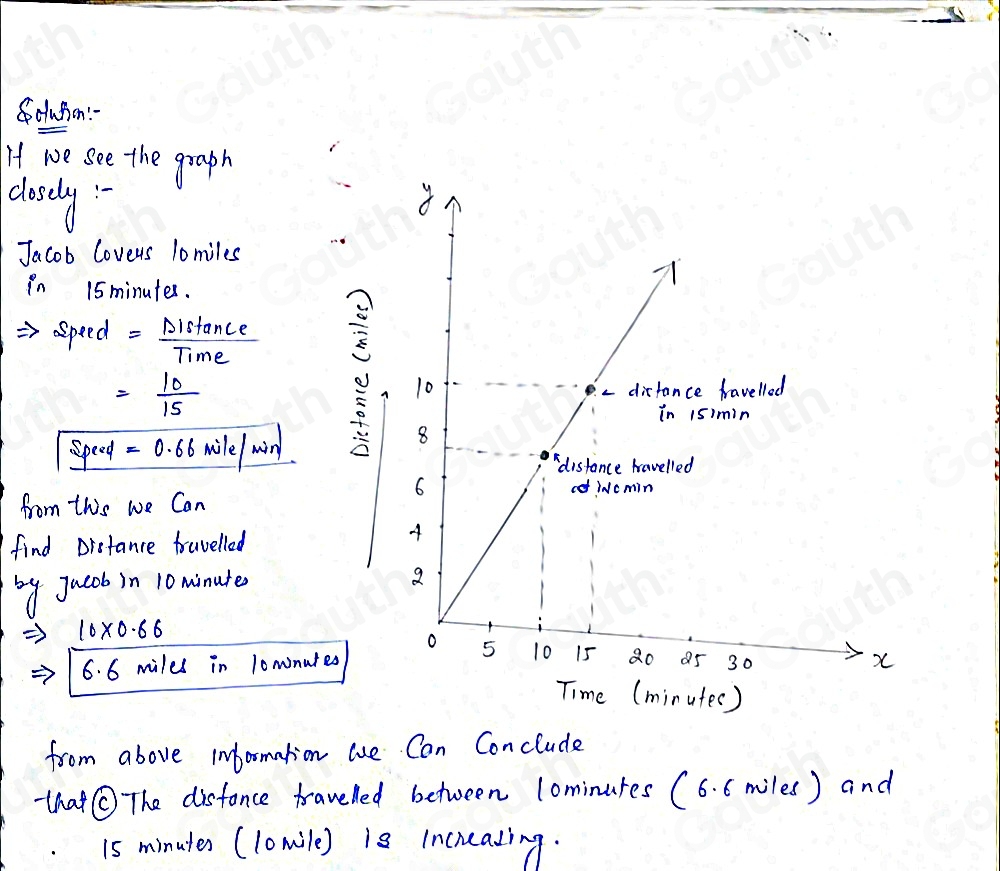 Solution:-
If we see the graph
closely :-
Jacob Covers 10 miles
in 15 minutes.
⇒ Speed = Distance
Time
= 10
15
Speed = 0.66 mile/min
from this we Can
find Distance travelled
by Jacob in 10 minutes
⇒ 10×0.66
⇒ 6.6 miles in 10 minutes
y
Distance (miles)
10
8
6
4
2
0
5 10 15 20 25 30
x
Time (minutes)
← distance travelled
in 15 min
distance travelled
min
from above information we Can Conclude
that Ⓒ The distance travelled between 10minutes (6.6 miles) and
15 minutes (10 mile) is Increasing.
Gauth